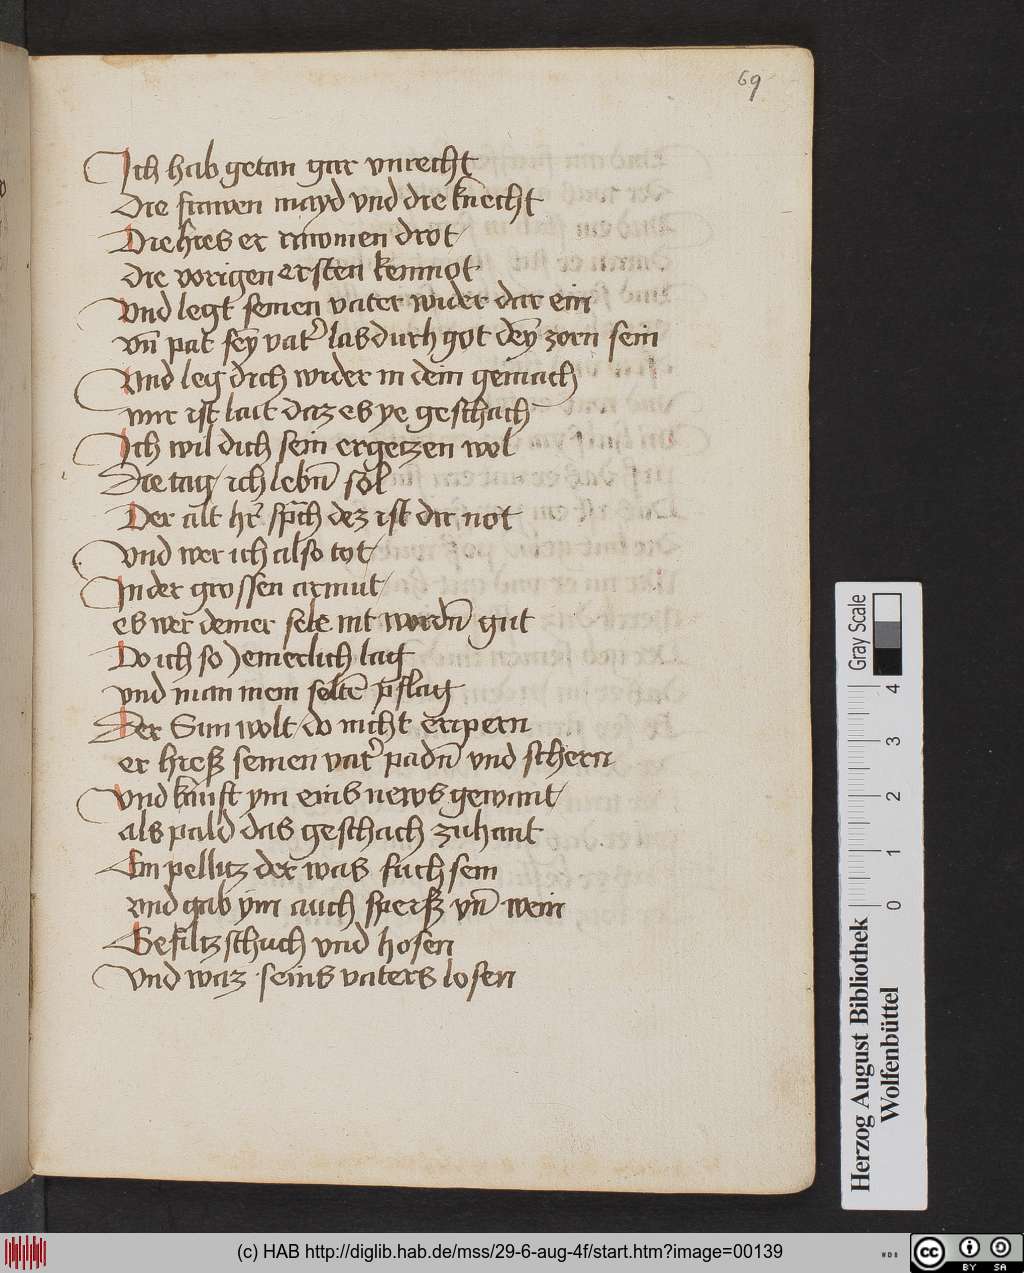 69
Ich hab getan gar vnrecht
Die frawen mayd vnd die knecht
Die hies er rawmen drot
die vorigen ersten kemnot
Vnd legt seinen vater wider dar ein
vn̄ pat sey̅ vat' las durch got dey̅ zorn sein
Vnd leg dich wider in dein gemach
mir ist lait daz es ye geschach
Ich wil dich sein ergetzen wol
Die tag ich lebn̄ sol
Der alt hr̄ sprach dez ist dir not
vnd wer ich also tot
In der grossen armut
es wer deiner sele nit wordn̄ gut
Do ich so Jemerlich lag
vnd man mein seltē pflag
Der Sun wolt do nicht enpern
er hieß seinen vat' padn̄ vnd schern
vnd kauft ym eins news gewant
als pald das geschach zuhant
Ein pellitz der was fuchsein
vnd gab ym auch sperß vn̄ wein
Gefiltz schuch vnd hosen
Vnd waz seins vaters losen
Herzog August Bibliothek
Wolfenbüttel
Gray Scale
0 1 2 3 4
(c) HAB http://diglib.hab.de/mss/29-6-aug-4f/start.htm?image=00139
WDB
cc BY SA